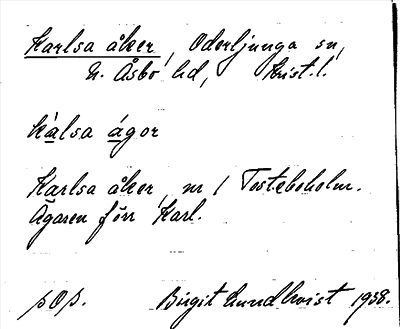 Karlsa åker, Oderljunga sn,
N. Åsbo hd, Krist. l.
kálsa ágor
Karlsa åker, nr 1 Tosteboholm.
Ägaren förr Karl.
Birgit Lundkvist 1938.